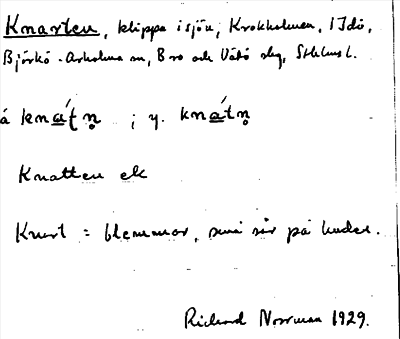 Knarten, klippa i sjön, Krokholmen, i Idö,
Björkö-Arholma sn, Bro och Vätö skg, Sthlms l.
å knátn̥ ; y. knátn̥
Knatten ek
Knart = blemmor, små sår på huden.
Richard Norrman 1929.